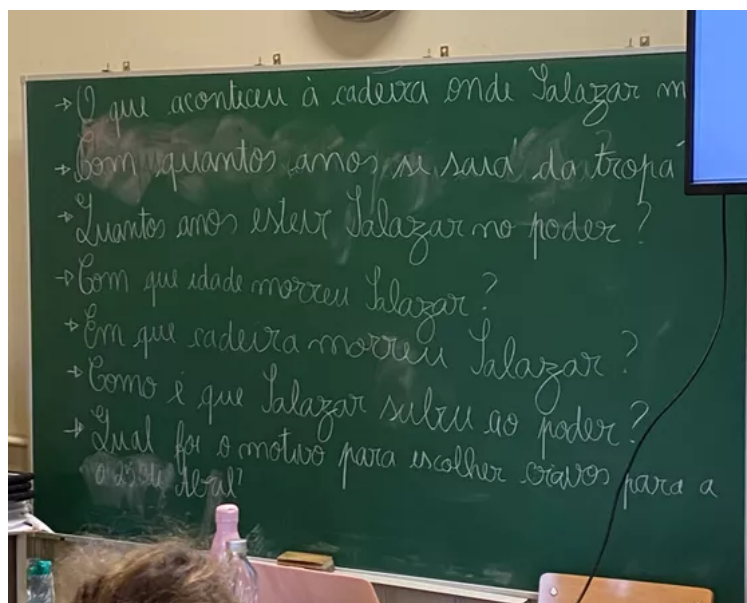 → O que aconteceu à cadeira onde Salazar m
→ Com quantos anos se saía da tropa
→ Quantos anos esteve Salazar no poder?
→ Com que idade morreu Salazar?
→ Em que cadeira morreu Salazar?
→ Como é que Salazar subiu ao poder?
→ Qual foi o motivo para escolher cravos para a
o 25 de Abril?